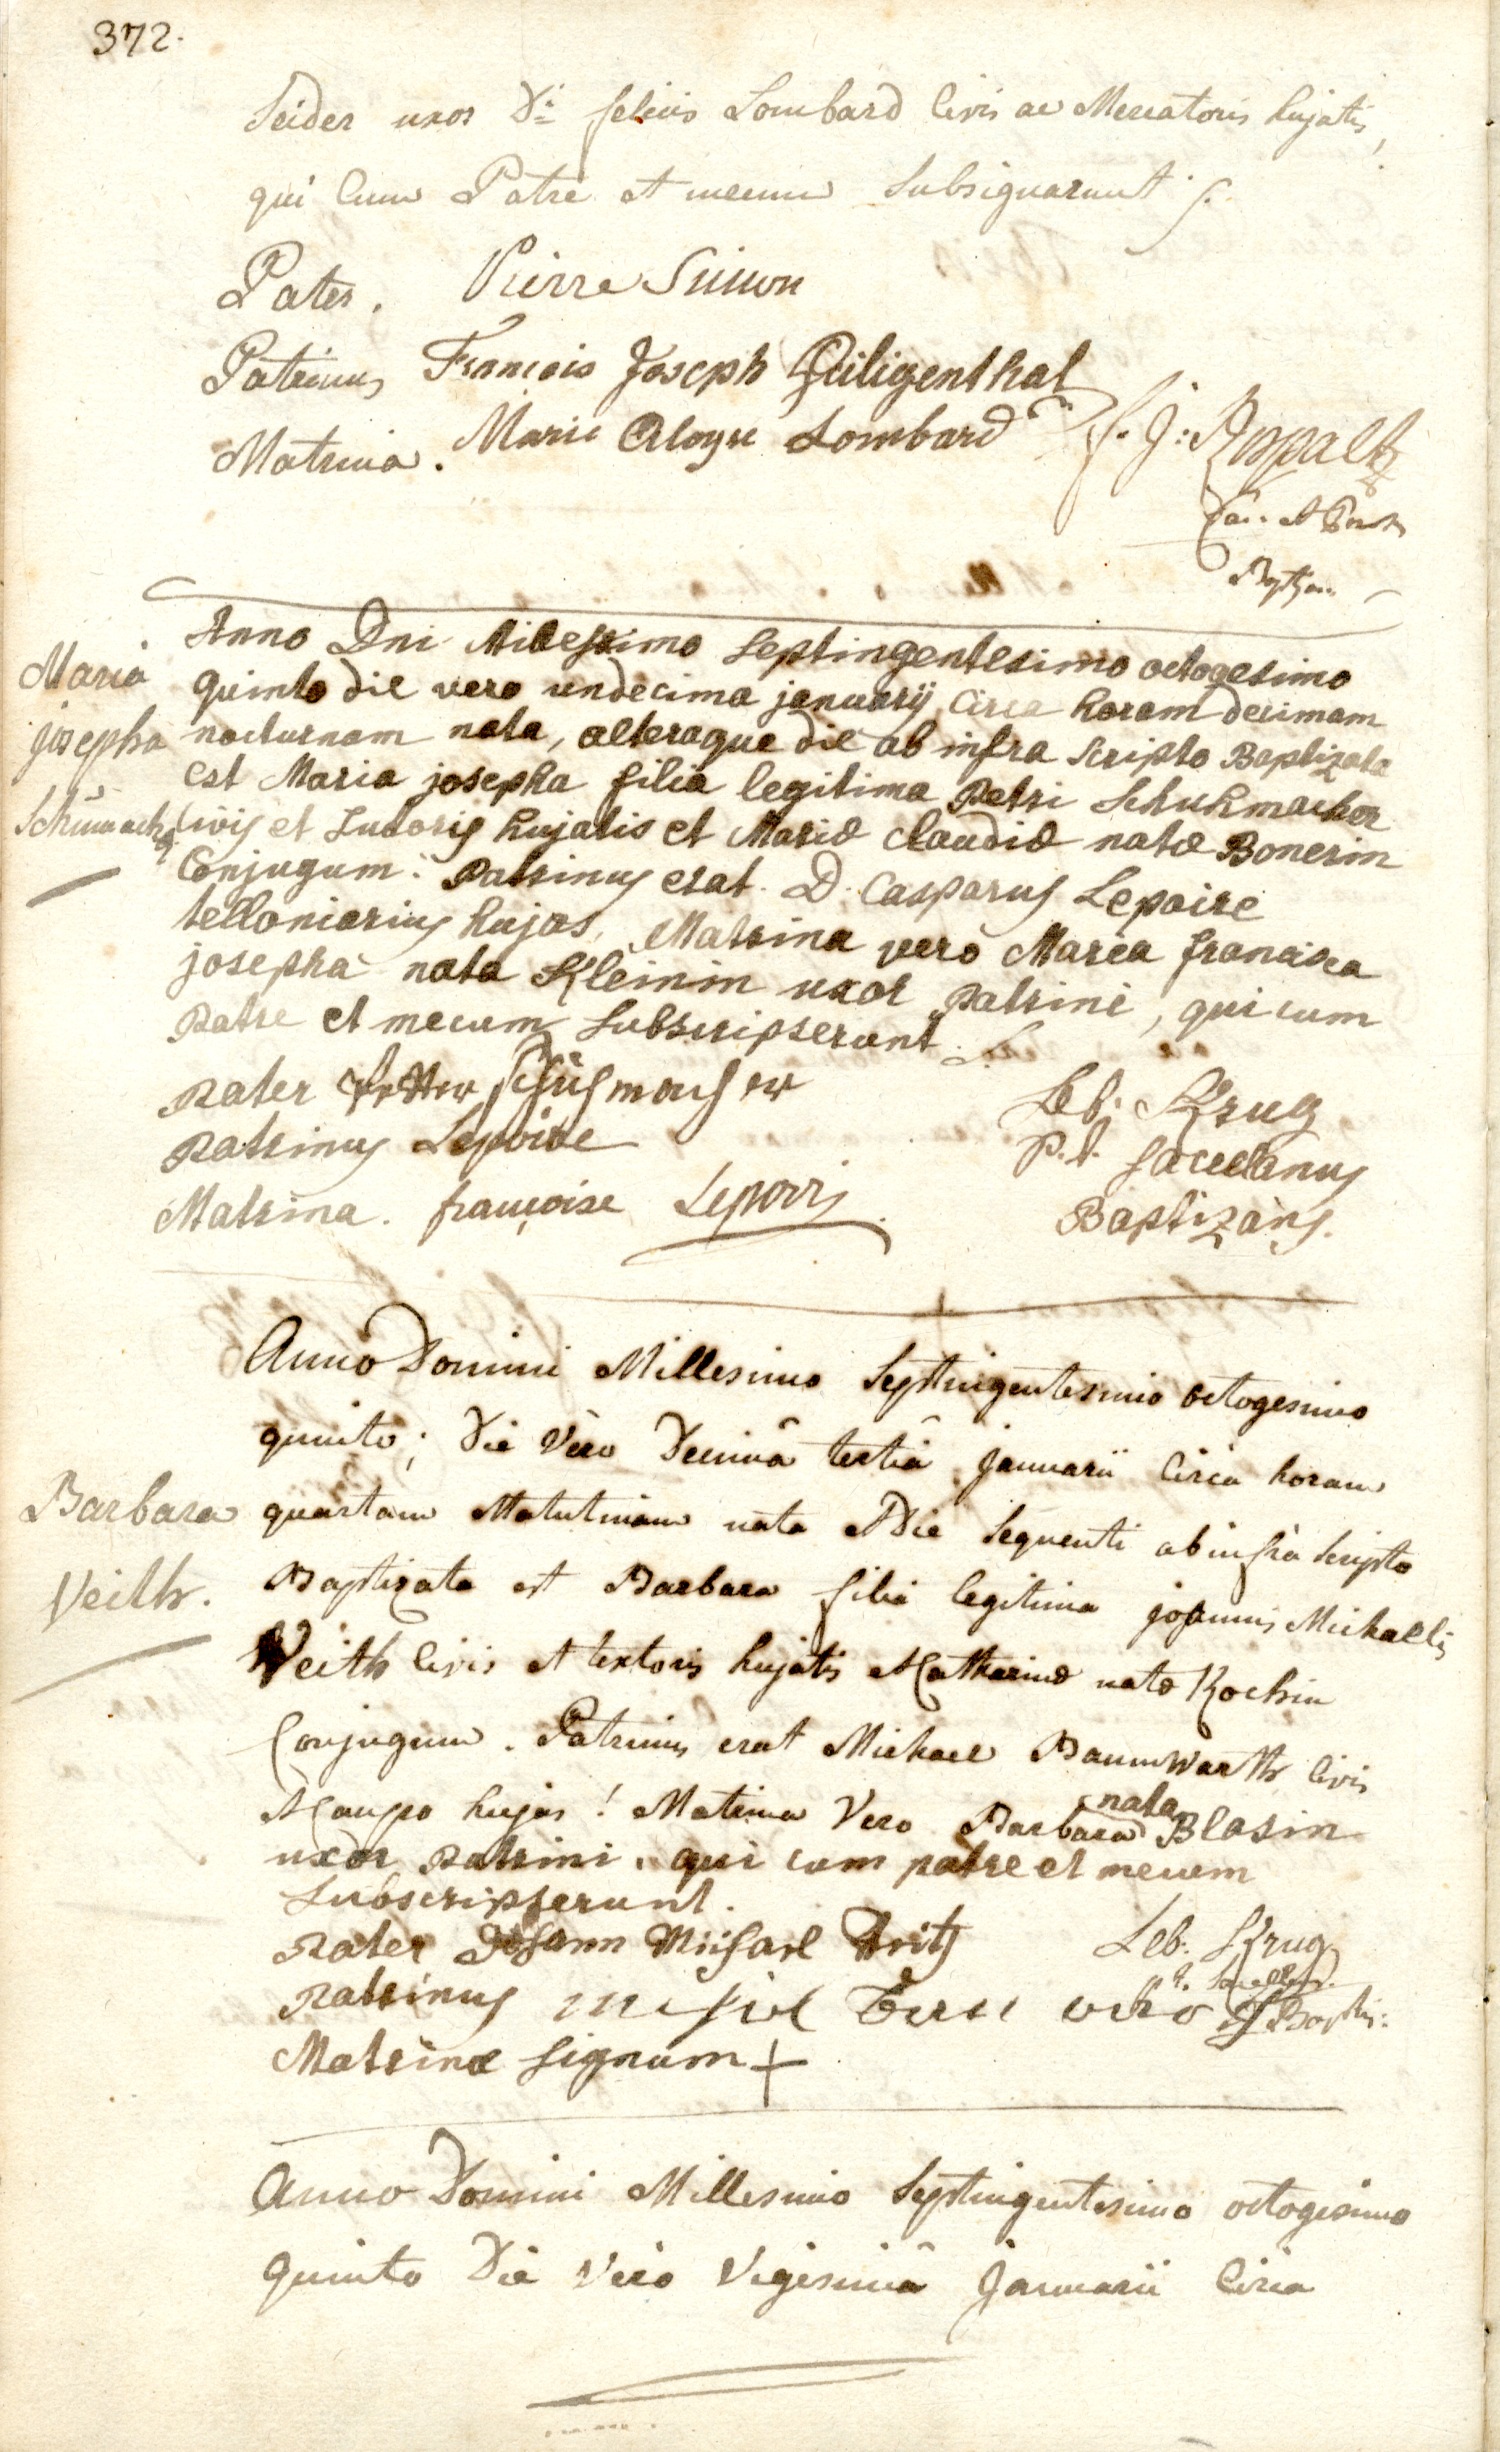 372.
Seider uxor D:i felicis Lombard Civis ac Mercatoris hujatis,
qui Cum Patre et mecum Subsignarunt
Pater. Pierre Simon
Patrinus François Joseph Heiligenthal
Matrina. Marie Aloyse Lombard
F. J:
Anno Dni Milessimo Septingentesimo octogesimo
Maria
quinto die vero undecima januarij Circa horam decimam
josepha
nocturnam nata, alteraque die ab infra Scripto Baptizata
est Maria josepha filia legitima Petri Schuhmacher
Schumacher
Civis et Sutoris hujatis et Mariæ Claudiæ natæ Bonerin
Conjugum: Patrinus erat D. Casparus Lepaire
telloniarius hujas, Matrina verò Maria francisca
josepha nata Kleinin uxor patrini, qui cum
Patre et mecum Subscripserunt.
Pater Petter Schuhmacher
Leb. Krug
Patrinus Lepaire
p.t. Sacellanus
Matrina. françoise Leparis
Baptizans.
Anno Domini Millesimo Septingentesimo octogesimo
quinto; Die Vero Decimâ tertiâ Januarii Circa horam
Barbara
quartam Matutinam nata et Die Sequenti ab infra Scripto
Veith.
Baptizata est Barbara filia legitima joannis Michaelis
Veith Civis et textoris hujatis et Catharinæ natæ Kochin
Conjugum. Patrinus erat Michael Baumwarth Civis
et Caupo hujas! Matrina Vero Barbara nata Blasin
uxor patrini. qui cum patre et mecum
Subscripserunt.
Pater Johann Michael Veith
Leb. Krug
Patrinus
Matrinæ Signum +
Anno Domini Millesimo Septingentesimo octogesimo
quinto Die Vero Vigesimâ Januarii Circa